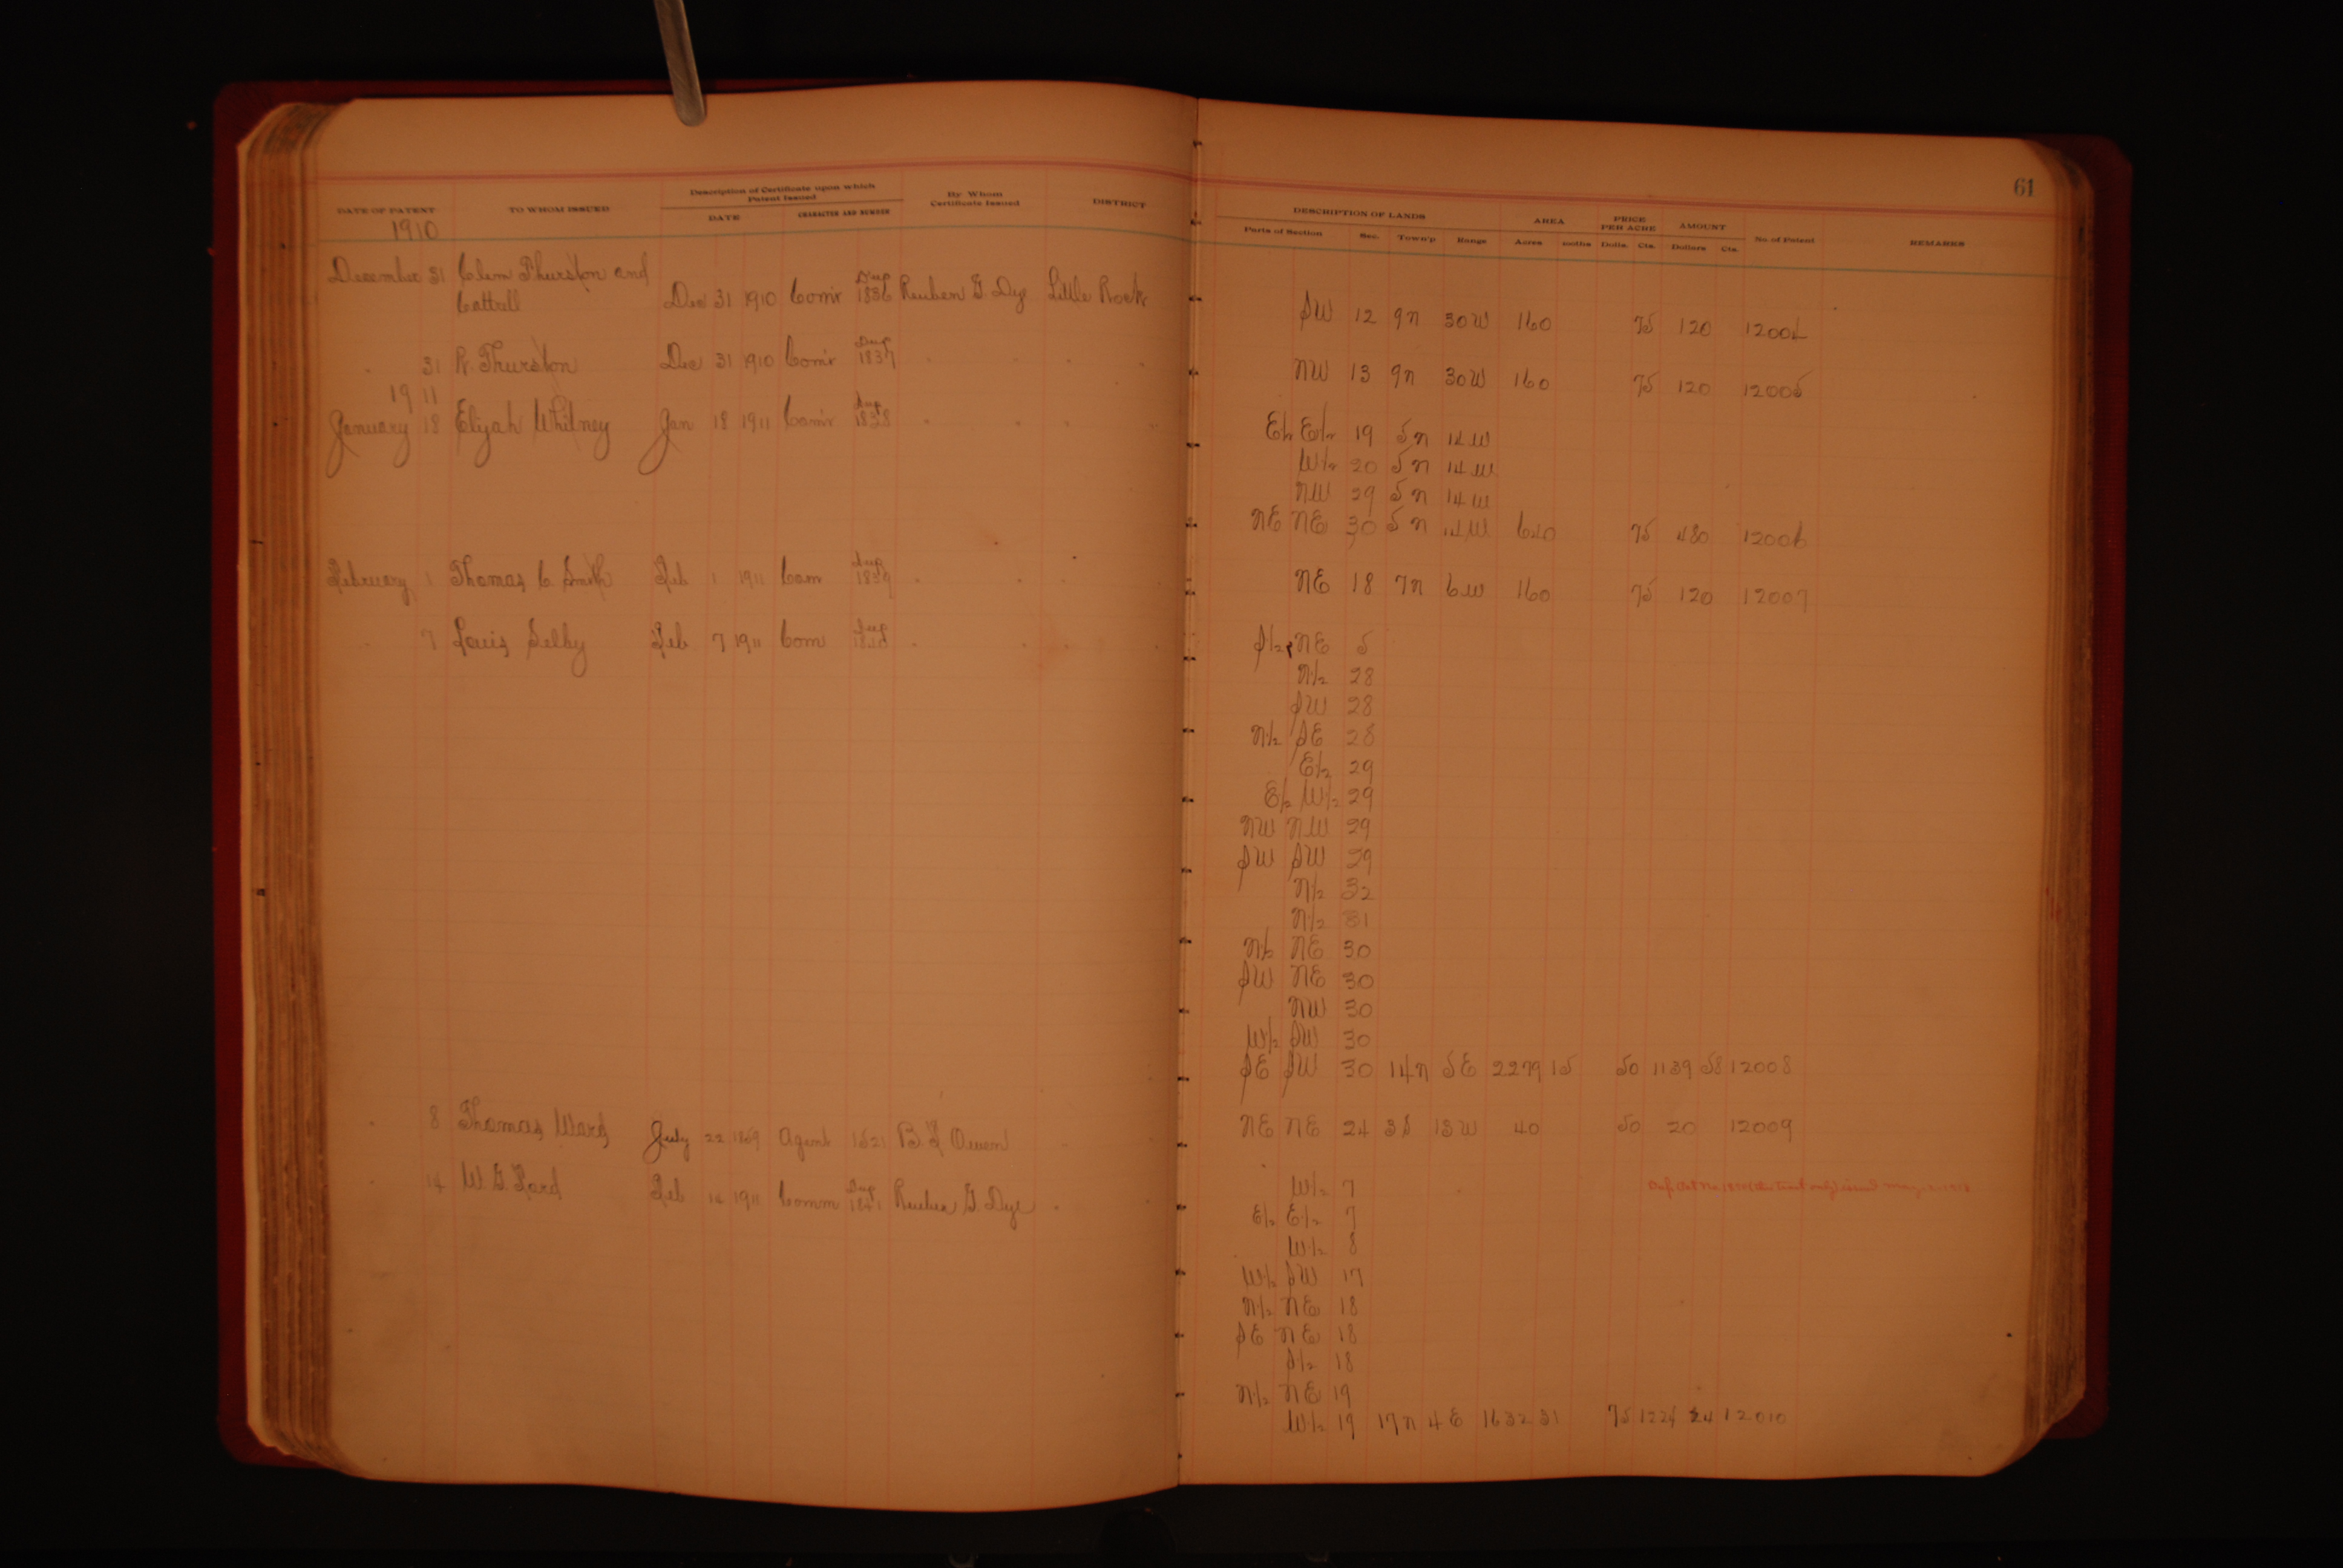 61
DATE OF PATENT TO WHOM ISSUED Description of Certificate upon which Patent Issued DATE CHARACTER AND NUMBER By Whom Certificate Issued DISTRICT DESCRIPTION OF LANDS Parts of Section Sec. Town'p Range AREA Acres 100ths PRICE PER ACRE Dolls. Cts. AMOUNT Dollars Cts. No. of Patent REMARKS
1910
December 31 Clem Thurston and
Cattrell Dec 31 1910 Com'r Dup 1836 Reuben G. Dye Little Rock SW 12 9N 30W 160 75 120 12004
" 31 R. Thurston Dec 31 1910 Com'r Dup 1837 " " " " NW 13 9N 30W 160 75 120 12005
1911
January 18 Elijah Whitney Jan 18 1911 Com'r Dup 1838 " " " " E½ E½ 19 5N 14W
W½ 20 5N 14W
NW 29 5N 14W
NE NE 30 5N 14W 640 75 480 12006
February 1 Thomas C. Smith Feb 1 1911 Com Dup 1839 " " " NE 18 7N 6W 160 75 120 12007
" 7 Louis Selby Feb 7 1911 Com Dup 1840 " " " " S½ NE 5
N½ 28
SW 28
N½ SE 28
E½ 29
E½ W½ 29
NW NW 29
SW SW 29
N½ 32
N½ 31
N½ NE 30
SW NE 30
NW 30
W½ SW 30
SE SW 30 14N 5E 2279 15 50 1139 58 12008
" 8 Thomas Ward July 22 1869 Agent 1521 B. F. Owen " NE NE 24 3S 13W 40 50 20 12009
" 14 W. G. Lard Feb 14 1911 Comm Dup 1841 Reuben G. Dye " " W½ 7
E½ E½ 7
W½ 8
W½ SW 17
N½ NE 18
SE NE 18
S½ 18
N½ NE 19
W½ 19 17N 4E 1632 31 75 1224 24 12010